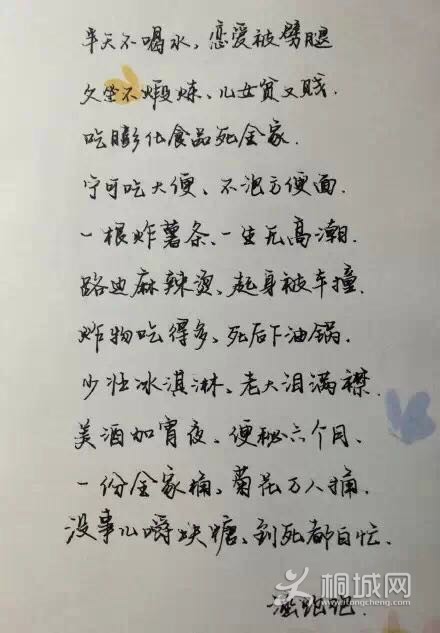 半天不喝水，恋爱被劈腿
久坐不煅炼、儿女贫又贱.
吃膨化食品死全家.
宁可吃大便、不泡方便面.
一根炸薯条、一生无高潮.
路边麻辣烫、起身被车撞.
炸物吃得多、死后下油锅.
少壮冰淇淋、老大泪满襟.
美酒加宵夜、便秘六个月、
一份全家桶、菊花万人捅.
没事儿嚼块糖、到死都白忙.
桐城网
www.itongcheng.com